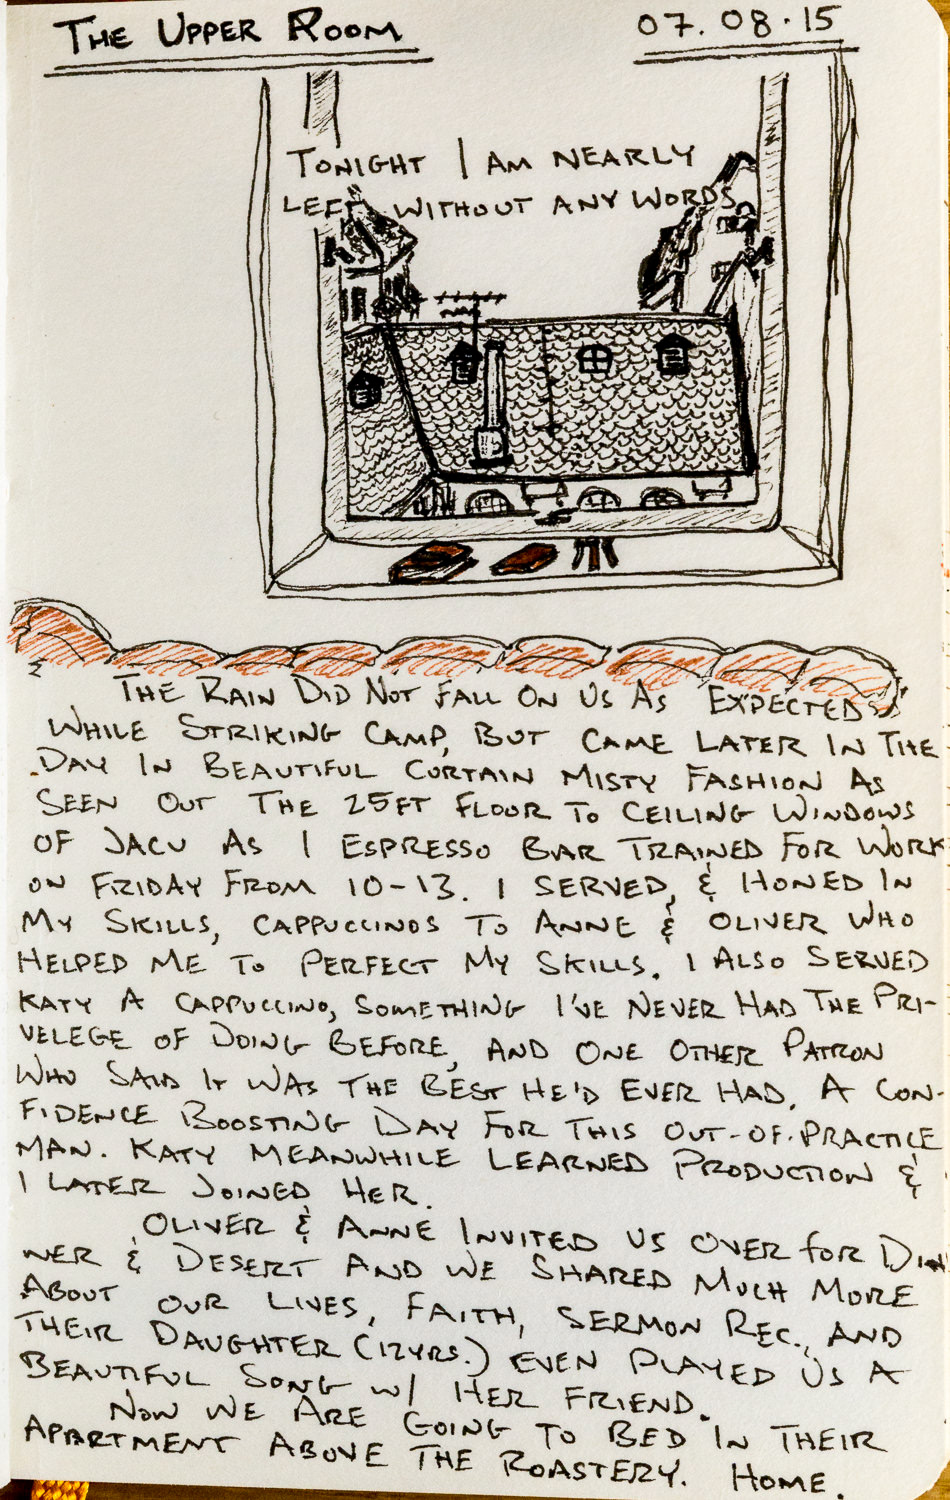 THE UPPER ROOM
07.08.15
TONIGHT I AM NEARLY
LEFT WITHOUT ANY WORDS
THE RAIN DID NOT FALL ON US AS EXPECTED
WHILE STRIKING CAMP, BUT CAME LATER IN THE
DAY IN BEAUTIFUL CURTAIN MISTY FASHION AS
SEEN OUT THE 25FT FLOOR TO CEILING WINDOWS
OF JACU AS I ESPRESSO BAR TRAINED FOR WORK
ON FRIDAY FROM 10-13. I SERVED, & HONED IN
MY SKILLS, CAPPUCCINOS TO ANNE & OLIVER WHO
HELPED ME TO PERFECT MY SKILLS. I ALSO SERVED
KATY A CAPPUCCINO, SOMETHING I'VE NEVER HAD THE PRI-
VELEGE OF DOING BEFORE, AND ONE OTHER PATRON
WHO SAID IT WAS THE BEST HE'D EVER HAD. A CON-
FIDENCE BOOSTING DAY FOR THIS OUT-OF-PRACTICE
MAN. KATY MEANWHILE LEARNED PRODUCTION &
I LATER JOINED HER.
OLIVER & ANNE INVITED US OVER FOR DIN
NER & DESERT AND WE SHARED MUCH MORE
ABOUT OUR LIVES, FAITH, SERMON REC., AND
THEIR DAUGHTER (12YRS.) EVEN PLAYED US A
BEAUTIFUL SONG W/ HER FRIEND.
NOW WE ARE GOING TO BED IN THEIR
APARTMENT ABOVE THE ROASTERY. HOME.